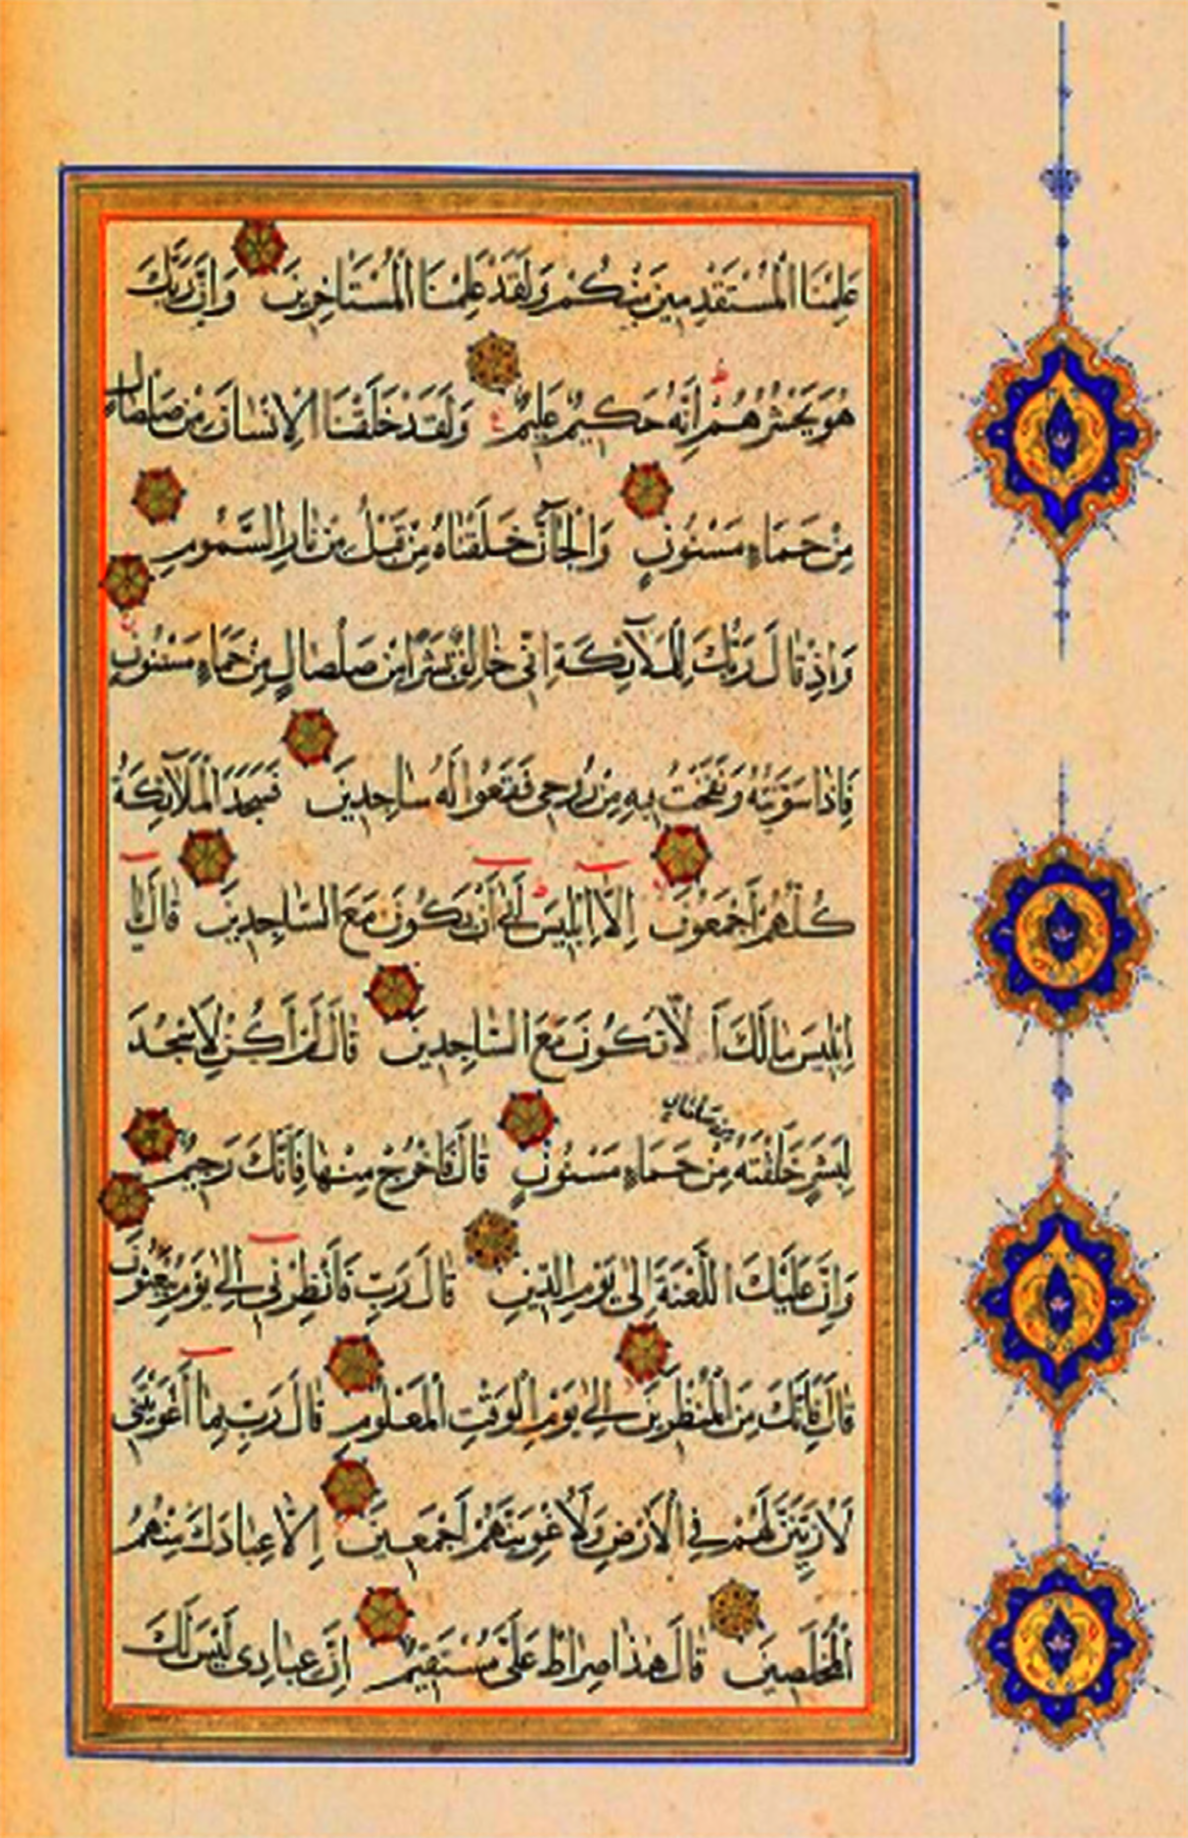 عَلِمْنَا الْمُسْتَقْدِمِينَ مِنْكُمْ وَلَقَدْ عَلِمْنَا الْمُسْتَاخِرِينَ وَاِنَّ رَبَّكَ
هُوَ يَحْشُرُهُمْ اِنَّهُ حَكِيمٌ عَلِيمٌ وَلَقَدْ خَلَقْنَا الْاِنْسَانَ مِنْ صَلْصَالٍ
مِنْ حَمَاءٍ مَسْنُونٍ وَالْجَآنَّ خَلَقْنَاهُ مِنْ قَبْلُ مِنْ نَارِ السَّمُومِ
وَاِذْ قَالَ رَبُّكَ لِلْمَلَآئِكَةِ اِنِّي خَالِقٌ بَشَرًا مِنْ صَلْصَالٍ مِنْ حَمَاءٍ مَسْنُونٍ
فَاِذَا سَوَّيْتُهُ وَنَفَخْتُ فِيهِ مِنْ رُوحِي فَقَعُوا لَهُ سَاجِدِينَ فَسَجَدَ الْمَلَآئِكَةُ
كُلُّهُمْ اَجْمَعُونَ اِلَّا اِبْلِيسَ اَبٰى اَنْ يَكُونَ مَعَ السَّاجِدِينَ قَالَ يَا
اِبْلِيسُ مَا لَكَ اَلَّا تَكُونَ مَعَ السَّاجِدِينَ قَالَ لَمْ اَكُنْ لِاَسْجُدَ
لِبَشَرٍ خَلَقْتَهُ مِنْ صَلْصَالٍ مِنْ حَمَاءٍ مَسْنُونٍ قَالَ فَاخْرُجْ مِنْهَا فَاِنَّكَ رَجِيمٌ
وَاِنَّ عَلَيْكَ اللَّعْنَةَ اِلٰى يَوْمِ الدِّينِ قَالَ رَبِّ فَاَنْظِرْنِي اِلٰى يَوْمِ يُبْعَثُونَ
قَالَ فَاِنَّكَ مِنَ الْمُنْظَرِينَ اِلٰى يَوْمِ الْوَقْتِ الْمَعْلُومِ قَالَ رَبِّ بِمَا اَغْوَيْتَنِي
لَاُزَيِّنَنَّ لَهُمْ فِي الْاَرْضِ وَلَاُغْوِيَنَّهُمْ اَجْمَعِينَ اِلَّا عِبَادَكَ مِنْهُمُ
الْمُخْلَصِينَ قَالَ هٰذَا صِرَاطٌ عَلَيَّ مُسْتَقِيمٌ اِنَّ عِبَادِي لَيْسَ لَكَ